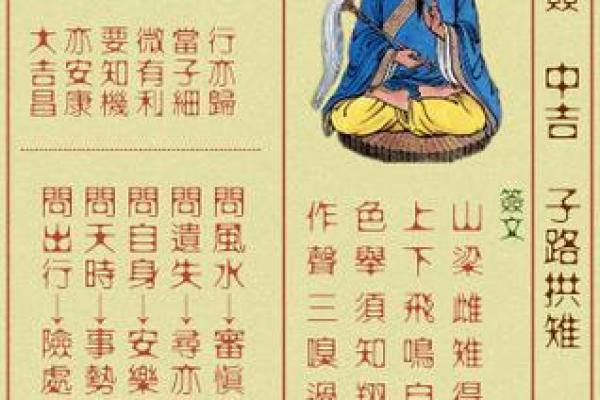 簽 中吉 子路拱雉
簽文
山梁雌雉得
上下飛鳴自
色舉須知翔
作聲三嗅過
行亦歸
當子細
微有利
要知機
亦安康
大吉昌
問風水→審慎
問遺失→尋亦
問自身→安樂
問天時→事勢
問出行→險處